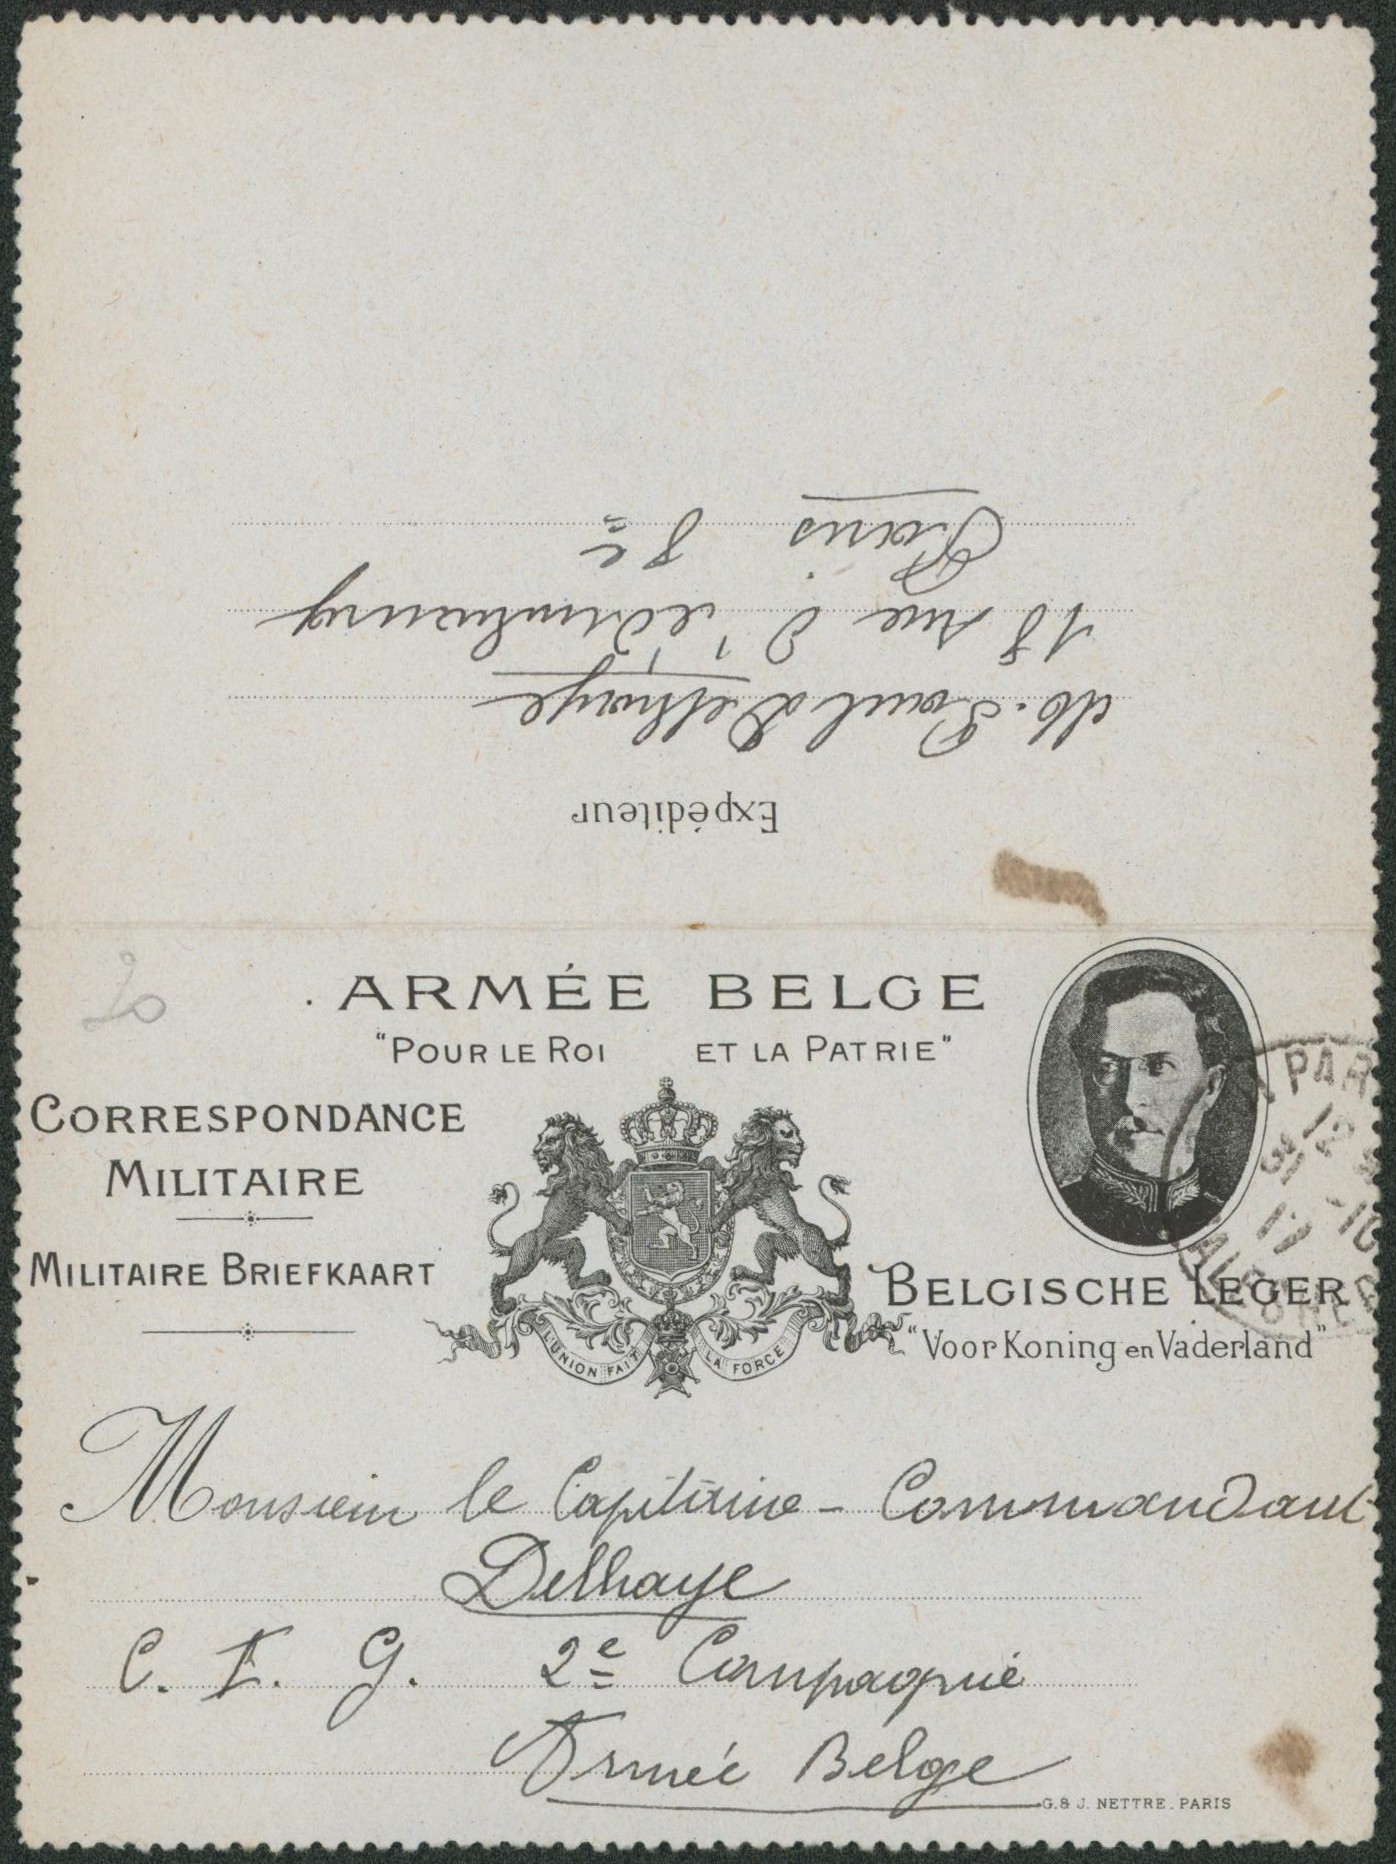 Expéditeur
M. Paul Delhaye
18 rue d'
Paris 8e
20
ARMÉE BELGE
"POUR LE ROI ET LA PATRIE"
CORRESPONDANCE
MILITAIRE
MILITAIRE BRIEFKAART
L'UNION FAIT LA FORCE
BELGISCHE LEGER
"Voor Koning en Vaderland"
PAR
12
31 -10
17
Monsieur le Capitaine-Commandant
Delhaye
C. I. G. 2e Compagnie
Armée Belge
G. & J. NETTRE. PARIS